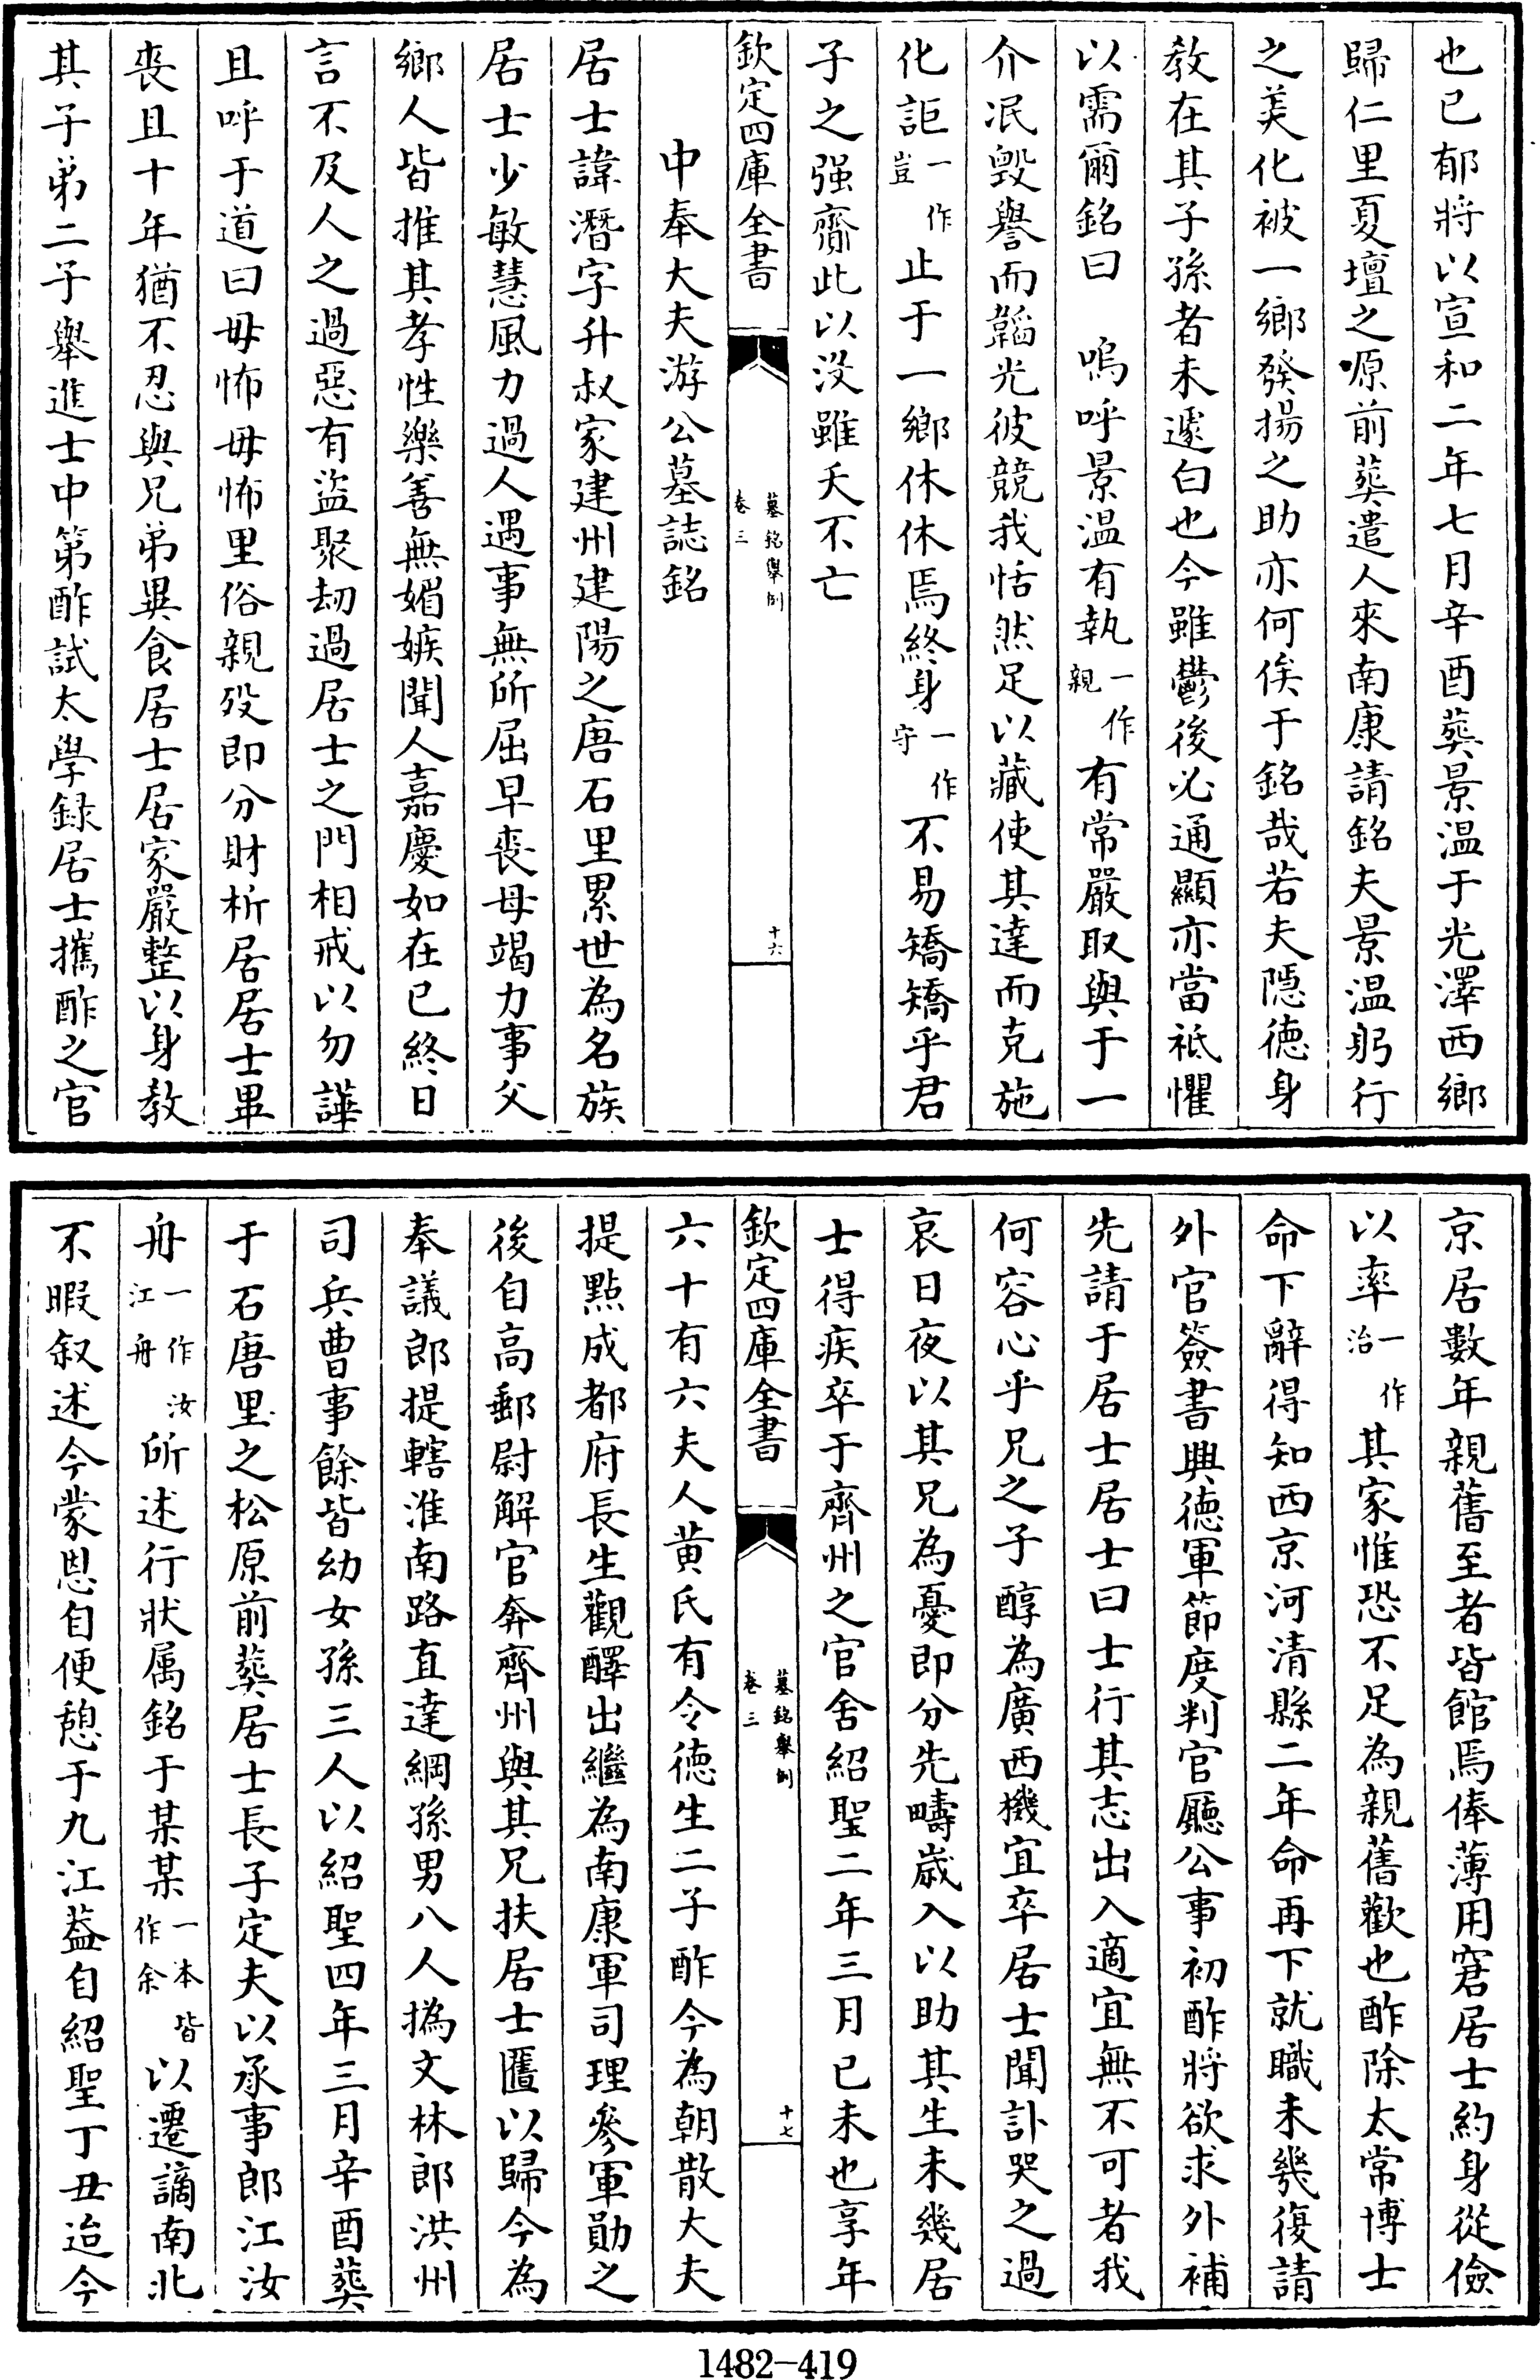 也已郁將以宣和二年七月辛酉葬景温于光澤西鄉
歸仁里夏壇之嫄前葬遣人來南康請銘夫景温躬行
之美化被一鄉發揚之助亦何俟于銘哉若夫隱德身
教在其子孫者未遽白也今雖鬱後必通顯亦當祇懼
以需爾銘曰　嗚呼景温有執一作親有常嚴取與于一
介冺毁譽而韜光彼競我恬然足以藏使其達而克施
化詎一作豈止于一鄉休休焉終身一作守不易矯矯乎君
子之强齎此以没雖夭不亡
欽定四庫全書
墓銘舉例
卷三
十六
中奉大夫游公墓誌銘
居士諱潛字升叔家建州建陽之唐石里累世為名族
居士少敏慧風力過人遇事無所屈早喪母竭力事父
鄉人皆推其孝性樂善無媢嫉聞人嘉慶如在已終日
言不及人之過惡有盜聚刼過居士之門相戒以勿譁
且呼于道曰毋怖毋怖里俗親殁即分財析居居士畢
喪且十年猶不忍與兄弟異食居士居家嚴整以身教
其子弟二子舉進士中第酢試太學録居士攜酢之官
京居數年親舊至者皆館焉俸薄用窘居士約身從儉
以率一作治其家惟恐不足為親舊歡也酢除太常博士
命下辭得知西京河清縣二年命再下就職未幾復請
外官簽書興德軍節度判官廳公事初酢將欲求外補
先請于居士居士曰士行其志出入適宜無不可者我
何容心乎兄之子醇為廣西機宜卒居士聞訃哭之過
哀日夜以其兄為憂即分先疇歲入以助其生未幾居
士得疾卒于齊州之官舍紹聖二年三月已未也享年
欽定四庫全書
墓銘舉例
卷三
十七
六十有六夫人黄氏有令德生二子酢今為朝散大夫
提點成都府長生觀醳出繼為南康軍司理參軍勛之
後自高郵尉解官奔齊州與其兄扶居士匶以歸今為
奉議郎提轄淮南路直達綱孫男八人撝文林郎洪州
司兵曹事餘皆幼女孫三人以紹聖四年三月辛酉葬
于石唐里之松原前葬居士長子定夫以承事郎江汝
舟一作汝江舟所述行狀属銘于某某一本皆作余以遷謫南北
不暇叙述今蒙恩自便憩于九江葢自紹聖丁丑迨今
1482-419